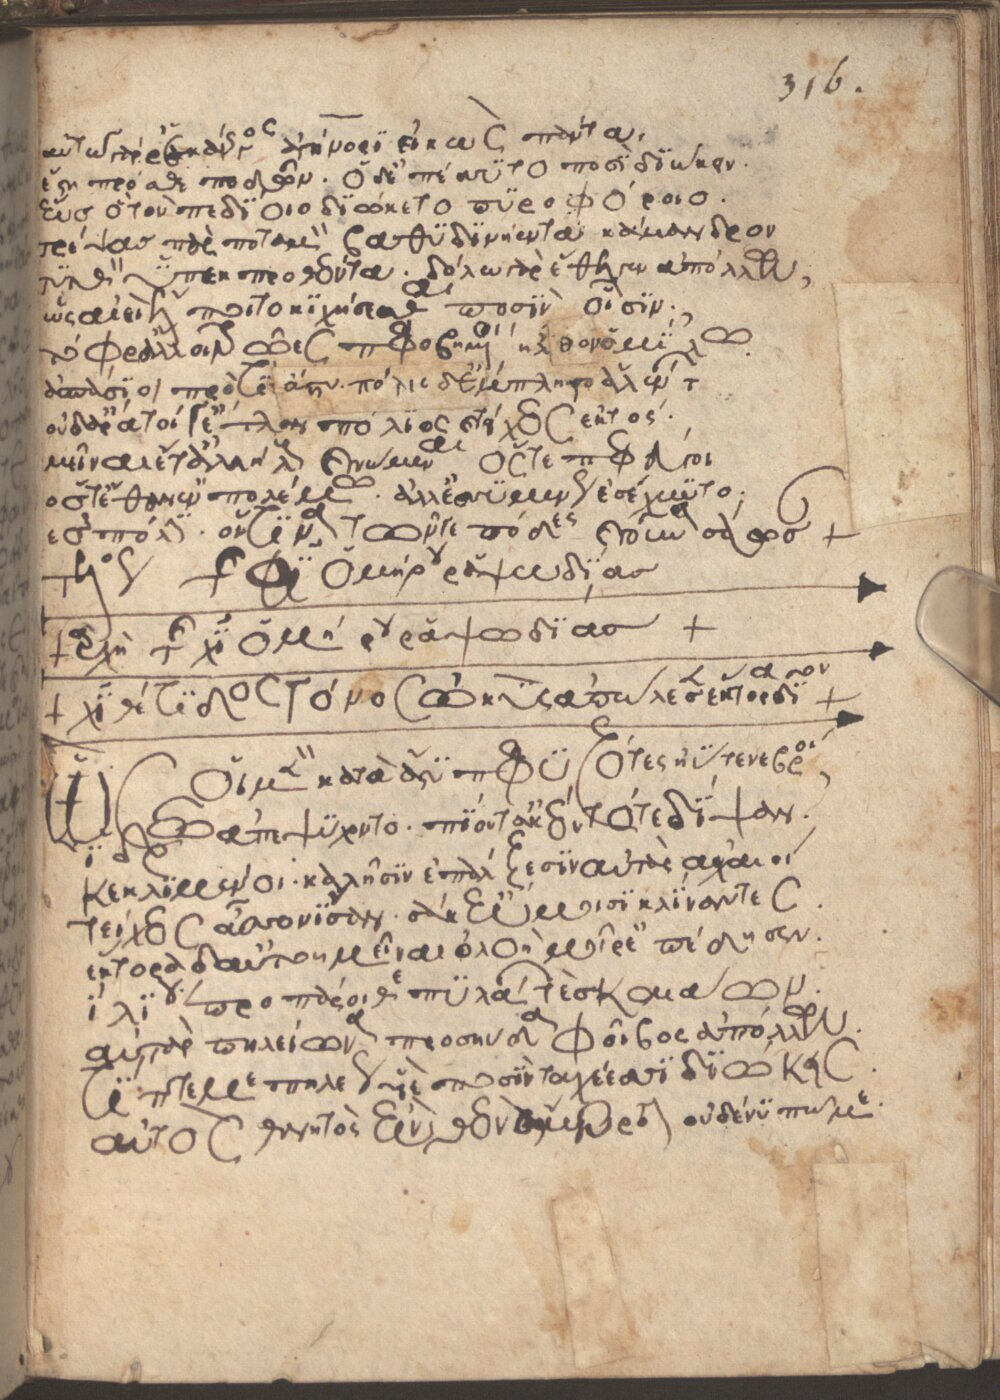 316.
αὐτῶ γὰρ ἑκάεργος ἀγήνορϊ ἐϊκὼς πάντα.
ἔστη πρόσθε ποδῶν. ὁ δ' ἐπέσσυτο ποσὶ διώκειν.
ἕως ὁ τὸν πεδίοιο διώκετο πυροφόροιο.
τρέψας πὰρ ποταμὸν βαθυδινήεντα σκάμανδρον
τυτθὸν ὑπεκπροθέοντα. δόλω γὰρ ἔθελγεν ἀπόλλων,
ὡς αἰεὶ ἔλποιτο κιχήσεσθαι ποσὶν οἷσιν.
τόφρ' ἄλλοι τρῶες πεφοβημένοι ἦλθον ὁμίλω
ἀσπάσιοι προτὶ ἄστυ. πόλις δ' ἔμπλητο ἀλέντων
οὐδ' ἄρα τοί γ' ἔτλαν πόλιος καὶ τείχεος ἐκτός.
μεῖναι ἔτ' ἀλλήλους γνώμεναι ὅς τε πεφεύγοι
ὅς τ' ἔθαν' ἐν πολέμω. ἀλλ' ἐσσυμένως ἐσέχυντο.
ἐς πόλιν. ὅν τινα τῶν γε πόδες καὶ γοῦνα σαώσαι +
τέλος τῆς φῖ ὁμήρου ῥαψωδίας
+ ἀρχὴ τῆς χῖ ὁμήρου ῥαψωδίας +
+ χῖ θέτιδος γόνος ὠκὺς ἀπώλεσεν ἕκτορα δῖον +
ὣς οἱ μὲν κατὰ ἄστυ πεφυζότες ἠΰτε νεβροὶ,
ἱδρῶ ἀπεψύχοντο. πίοντ' ἀκέοντό τε δίψαν.
κεκλιμένοι καλῆσιν ἐπάλξεσιν αὐτὰρ ἀχαιοὶ
τείχεος ἆσσον ἴσαν. σάκε' ὤμοισι κλίναντες.
ἕκτορα δ' αὐτοῦ μεῖναι ὀλοὴ μοῖρ' ἐπέδησεν.
ἰλίου προπάροιθε πυλάων τε σκαιάων.
αὐτὰρ πηλείωνα προσηύδα φοῖβος ἀπόλλων.
τίπτέ με πηλέος υἱὲ ποσὶν ταχέεσσι διώκεις.
αὐτὸς θνητὸς ἐὼν θεὸν ἄμβροτον οὐδέ νύ πώ με.